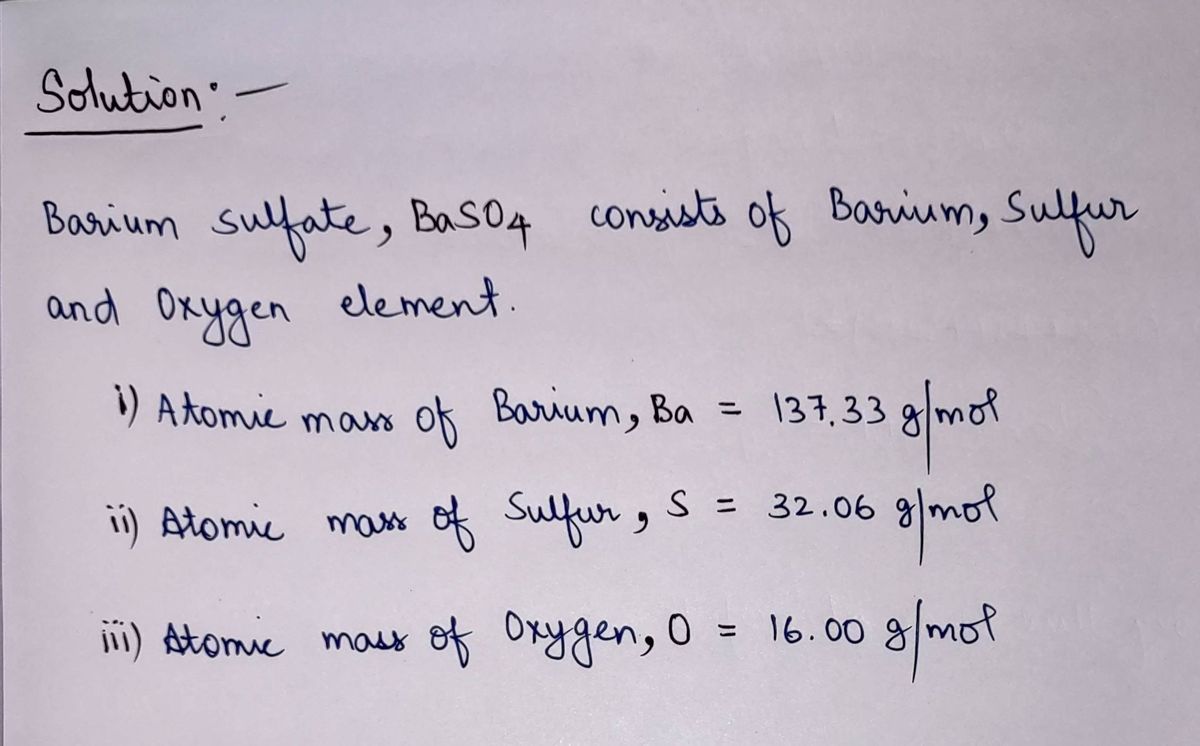 Solution:-
Barium sulfate, BaSO4 consists of Barium, Sulfur
and Oxygen element.
i) Atomic mass of Barium, Ba = 137.33 g/mol
ii) Atomic mass of Sulfur, S = 32.06 g/mol
iii) Atomic mass of Oxygen, O = 16.00 g/mol